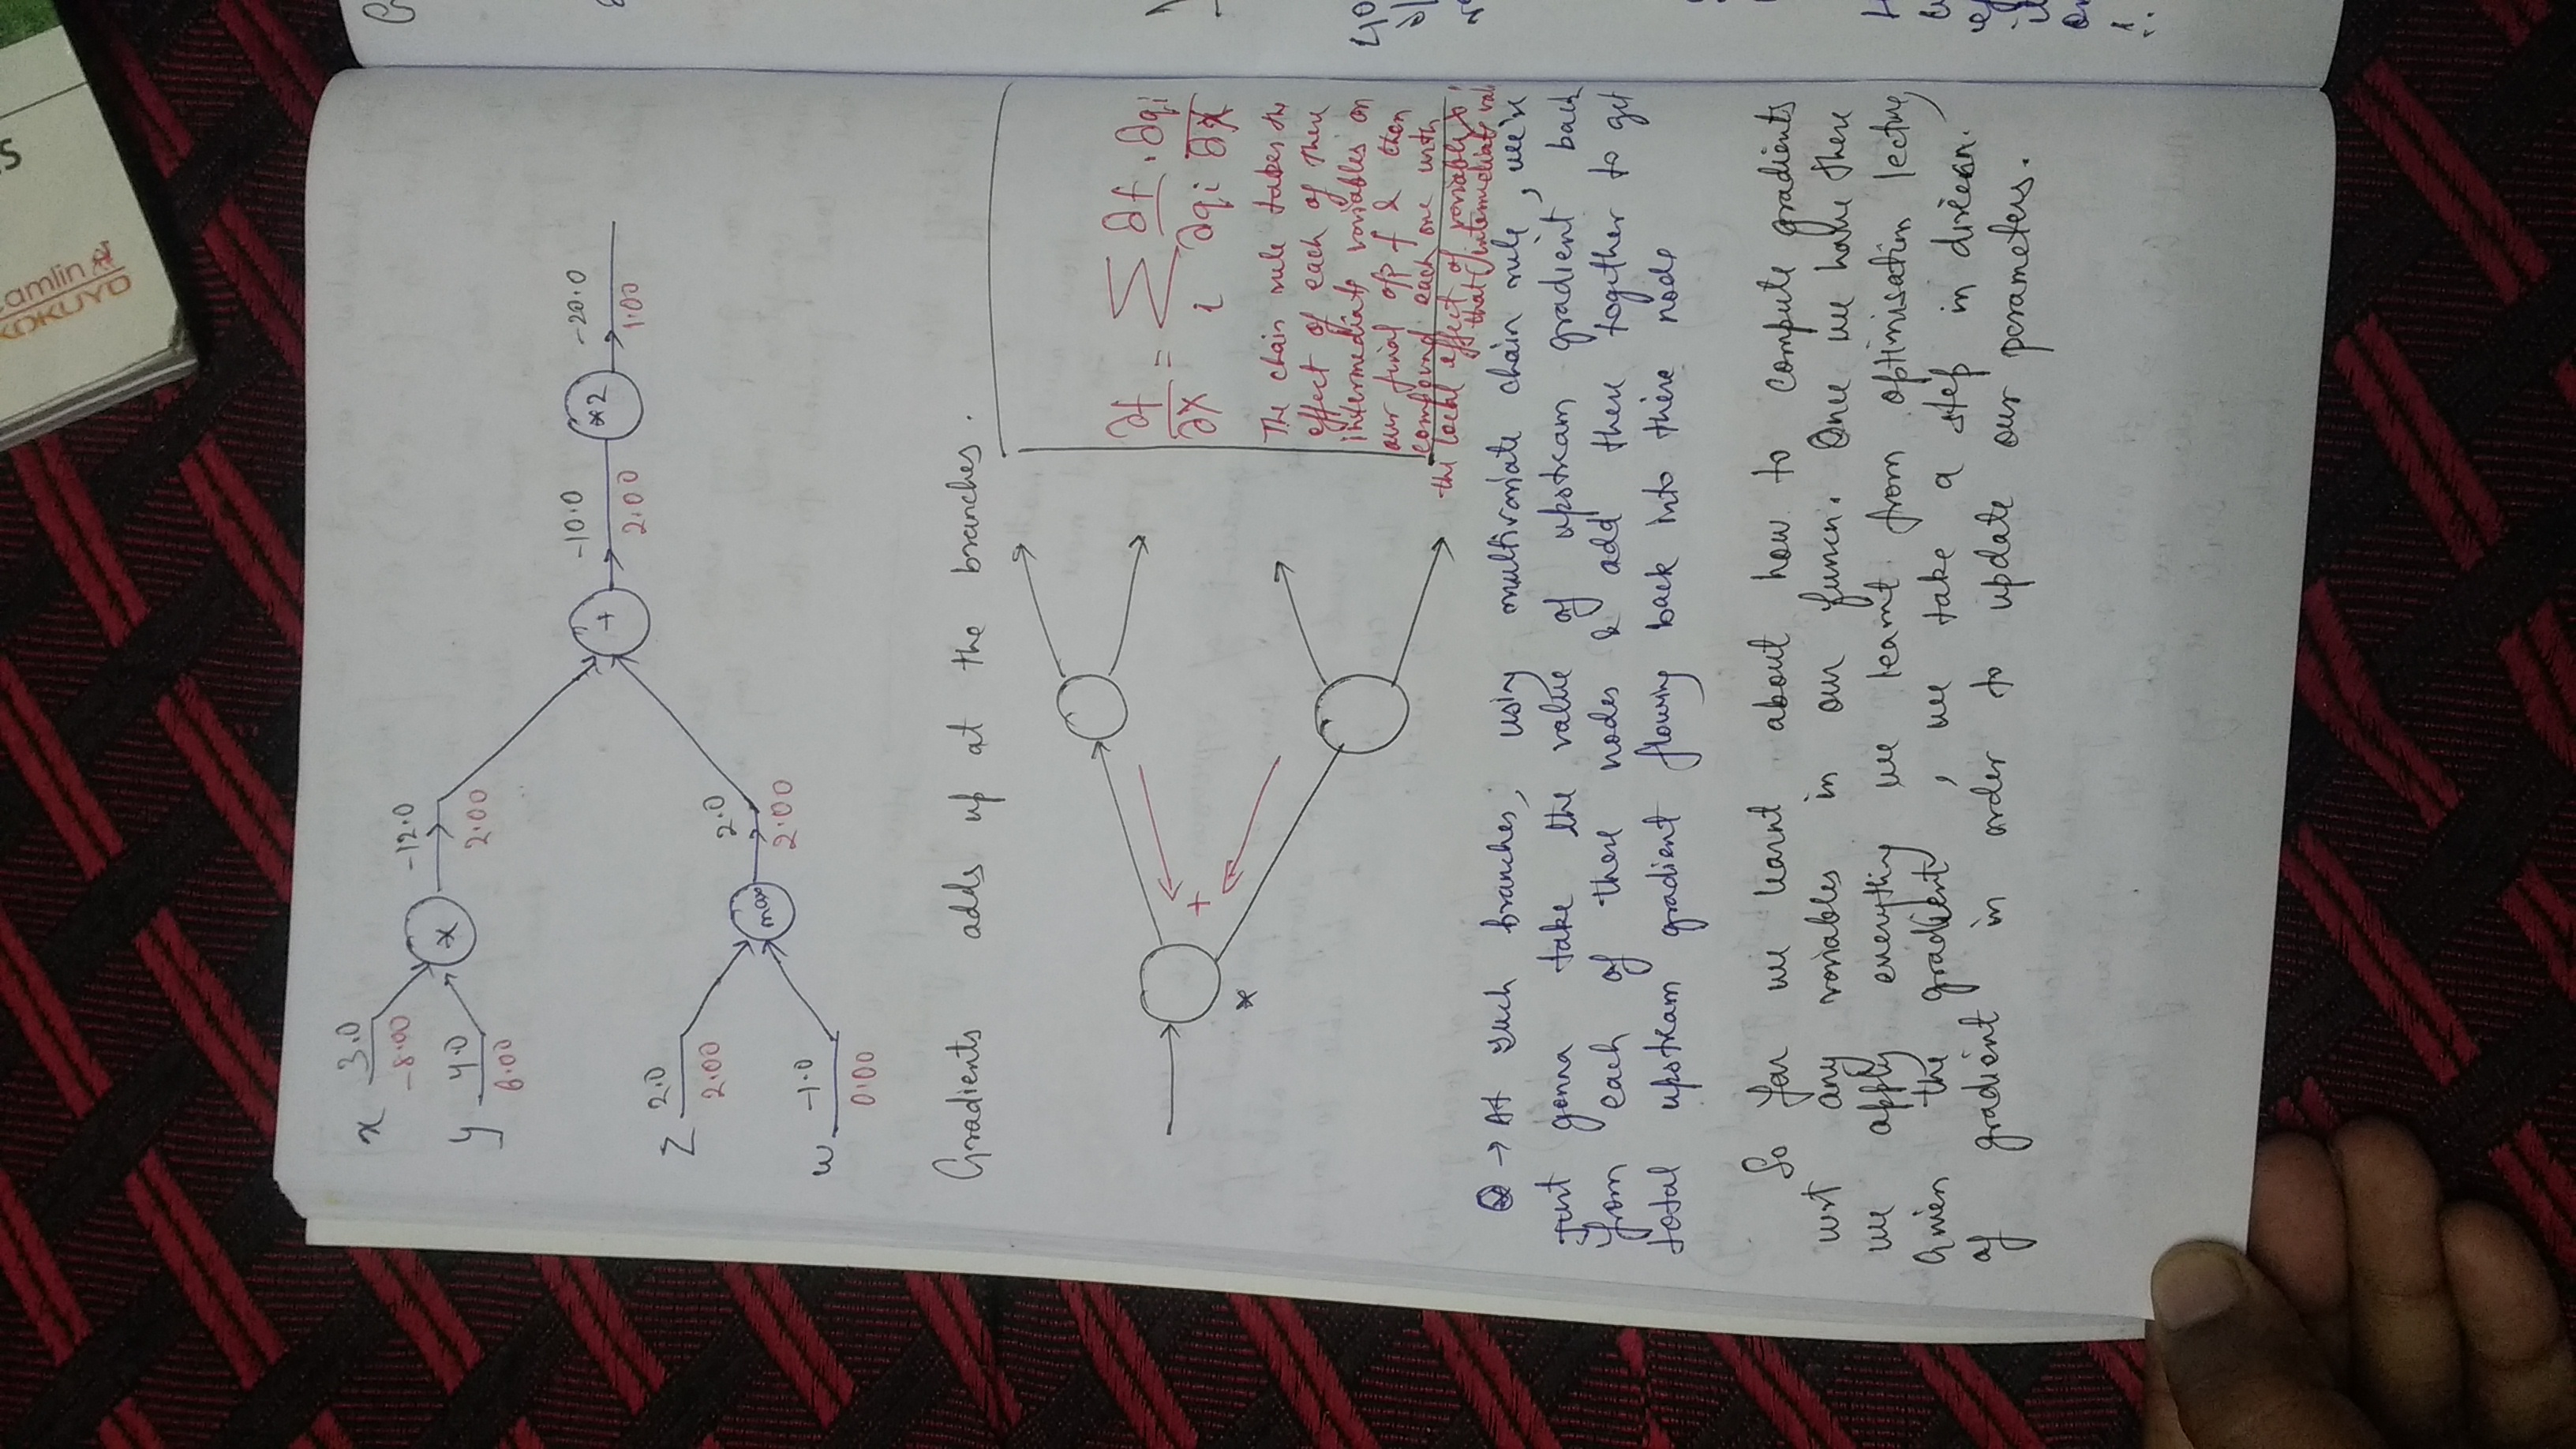 amlin
KOKUYO
S
x 3.0
-8.00
-12.0
x
2.00
y 4.0
6.00
-10.0
-20.0
+
*2
2.00
1.00
z 2.0
2.00
2.0
max
2.00
w -1.0
0.00
Gradients adds up at the branches.
+
*
∂f/∂x = Σ_i ∂f/∂qi . ∂qi/∂x
The chain rule takes the
effect of each of these
intermediate variables on
our final o/p f & then
compound each one with
the local effect of variable x
that intermediate val
Q → At such branches, using multivariate chain rule, we're
just gonna take the value of upstream gradient back
from each of these nodes & add these together to get
total upstream gradient flowing back into these node
So far we learnt about how to compute gradients
wrt any variables in our funcn. Once we have these
we apply everything we learnt from optimisation lecture,
Given the gradient, we take a step in direcn.
of gradient in order to update our parameters.
40